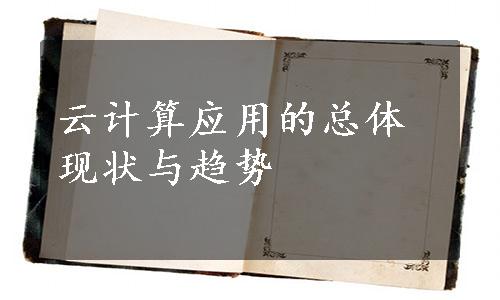 云计算应用的总体
现状与趋势